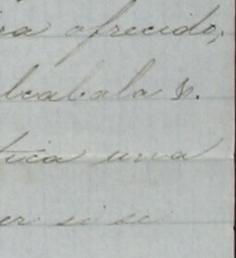 ofrecido,
alcabala &.
tica una
er si se